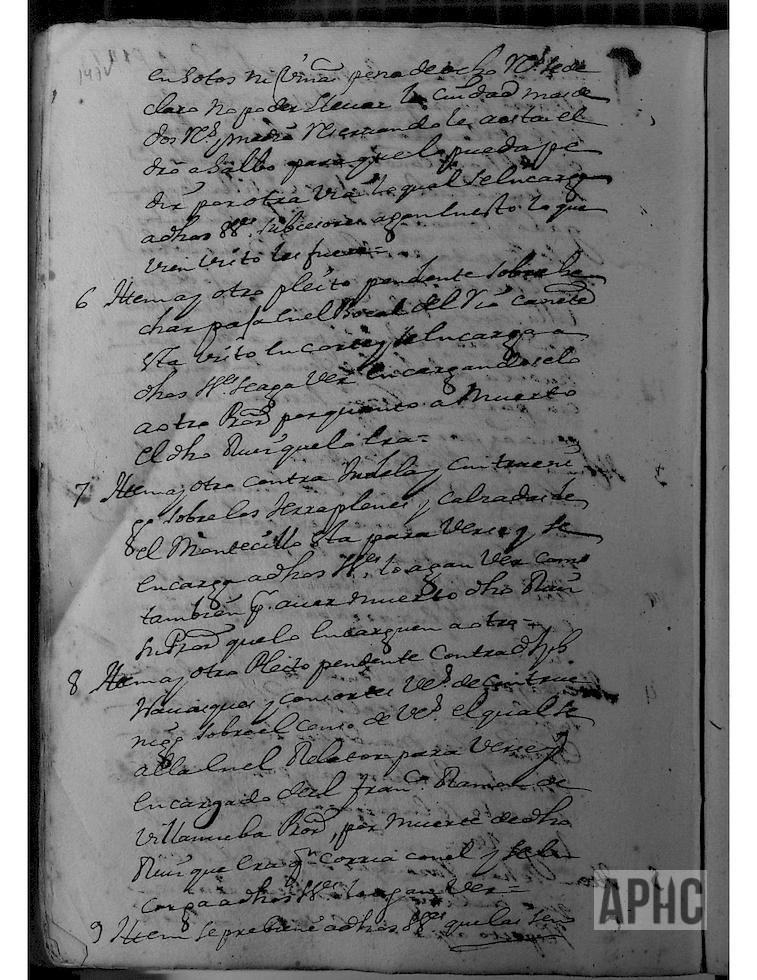 en Sotos ni Viña pena de ocho Rs. se de
claro no poder llevar la Ciudad mas de
dos Rs. y medio Reservandole a esta el
dro a Salbo para que lo pueda pe
dir por otra Via lo qual se encarga
a dhos SSes. subcesores agan en esto lo que
vien visto les fuere =
6 Ittem ay otro pleito pendente sobre he
char pasa en el Bocal del
esta visto en corte y se encarga a
dhos SSes. se aga Ver encargandoselo
a otro Pror por quanto a Muerto
el dho Ruiz que lo era =
7 Ittem ay otro contra Tudela y Cintrueni
go sobre los Terraplenes y Calzadas de
el Montecillo esta para Verse y se
encarga a dhos SSes. lo agan Ver como
tambien p. aver muerto dho Ruiz
su Pror que lo encarguen a otro =
8 Ittem ay otro Pleito pendente contra
y consortes Vzs. de Cintrue
nigo sobre el Censo de el qual se
alla en el Relator para Verse y
encargado de el Franco Ramon de
Villanueba Pror, por muerte de dho
Ruiz que era qn corria con el y se en
carga a dhos SSes. lo agan Ver =
9 Ittem se prebiene a dhos SSes. que las
APHC